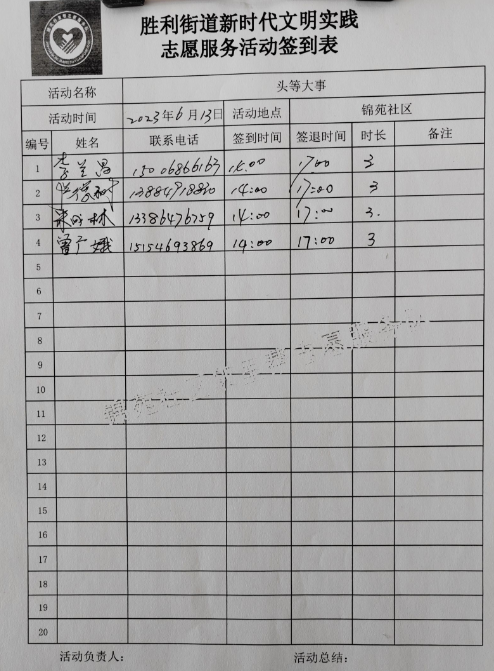 胜利街道新时代文明实践
志愿服务活动签到表
活动名称 头等大事
活动时间 2023年6月13日 活动地点 锦苑社区
编号 姓名 联系电话 签到时间 签退时间 时长 备注
1 李兰 15006866163 14:00 17:00 3
2 13884918820 14:00 17:00 3
3 林 13386476759 14:00 17:00 3.
4 曾广娥 15154693869 14:00 17:00 3
5
6
7
8
9
10
11
12
13
14
15
16
17
18
19
20
活动负责人： 活动总结：